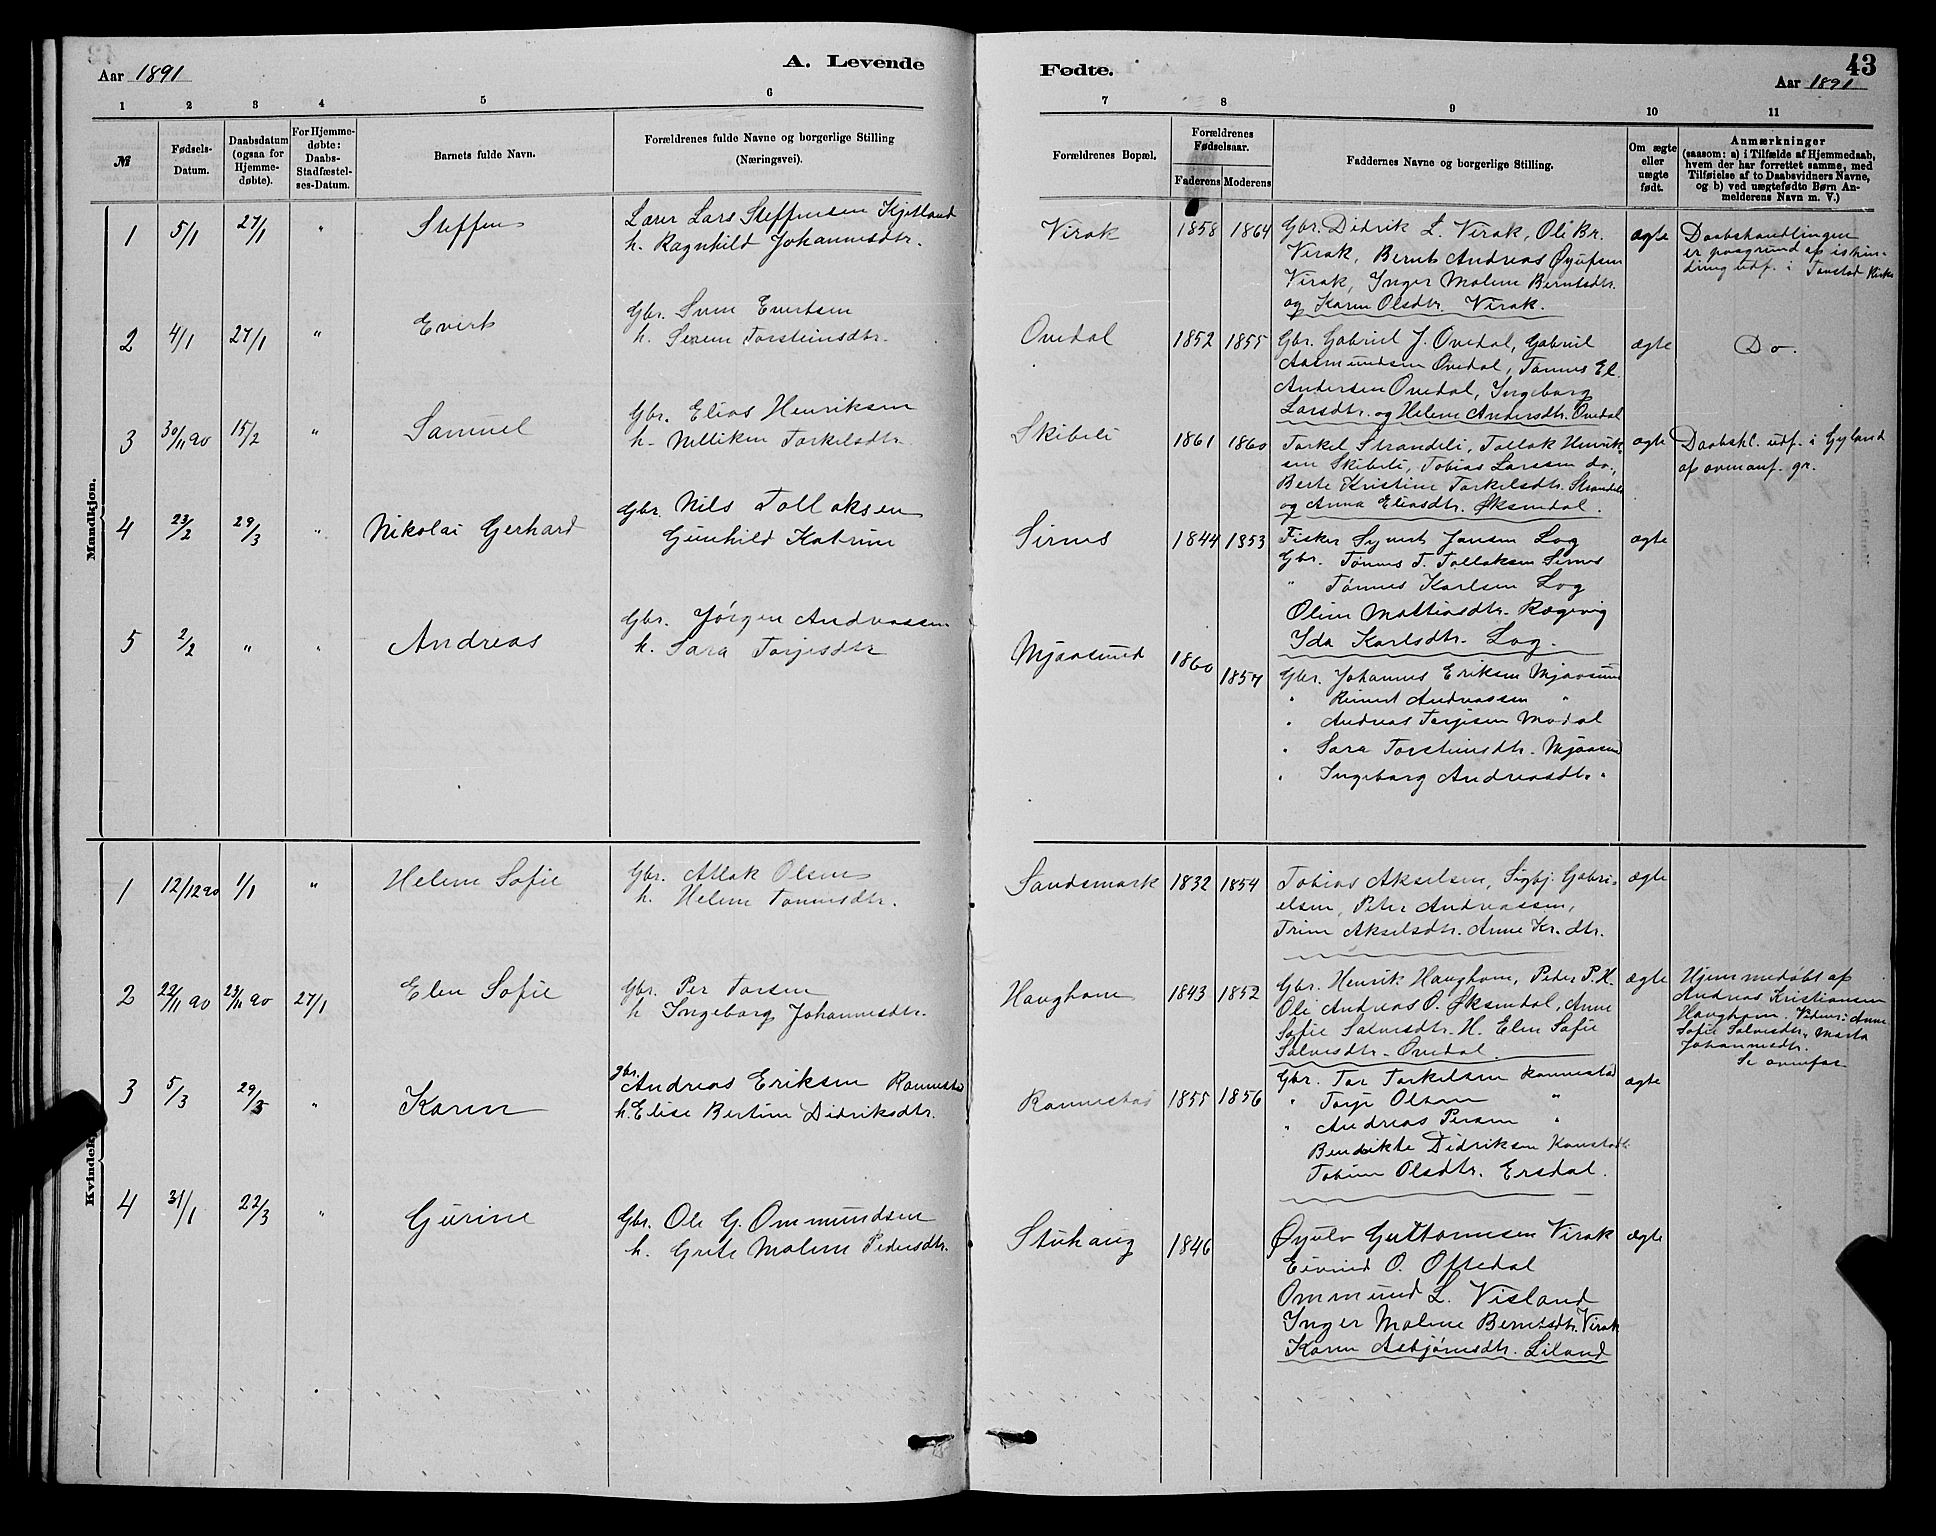 Aar 1891
A. Levende
Fødte.
43
Aar 1891
1 2 3 4 5 6 7 8 9 10 11
№
Fødsels-
Datum.
Daabsdatum
(ogsaa for
Hjemme-
døbte).
For Hjemme-
døbte:
Daabs-
Stadfæstel-
ses-Datum.
Barnets fulde Navn.
Forældrenes fulde Navne og borgerlige Stilling
(Næringsvei).
Forældrenes Bopæl.
Forældrenes
Fødselsaar.
Faderens Moderens
Faddernes Navne og borgerlige Stilling.
Om ægte
eller
uægte
født.
Anmærkninger
(saasom: a) i Tilfælde af Hjemmedaab,
hvem der har forrettet samme, med
Tilføielse af to Daabsvidners Navne,
og b) ved uægtefødte Børn An-
melderens Navn m. V.)
Mandkjøn.
1 5/1 27/1 " Steffen
Lærer Lars Steffensen Kjetland
h. Ragnhild Johannesdtr.
Virak 1858 1864
Gbr. Didrik L. Virak, Ole Br.
Virak, Bernt Andreas Øyufsen
Virak, Inger Malene Berntsdtr.
og Karen Olsdtr. Virak.
ægte
Daabshandlingen
er paagrund af ishin-
dring udf. i Tonstad Kirke
2 4/1 27/1 " Evert
Gbr. Sven Evertsen
h. Serene Torsteinsdtr.
Ovedal 1852 1855
Gbr. Gabriel J. Ovedal, Gabriel
Aasmundsen Ovedal, Tønnes El.
Andersen Ovedal, Ingeborg
Larsdtr. og Helene Andersdtr. Ovedal
ægte
Do.
3 30/11 90 15/2 " Samuel
Gbr. Elias Henriksen
h. Nelliken Torkelsdtr.
Skibeli 1861 1860
Torkel Strandeli, Tollak Henrik-
sen Skibeli, Tobias Larssen do.,
Berte Kristine Torkelsdtr. Strandeli
og Anna Eliasdtr. Øksendal.
ægte
Daabshl. udf. i Gyland
af ovenanf. gr.
4 23/2 29/3 " Nikolai Gerhard
Gbr. Nils Tollaksen
Gunhild Katrine
Sirnes 1844 1853
Fisker Syvert Jansen Log
Gbr. Tønnes T. Tollaksen Sirnes
" Tønnes Karlsen Log
Oline Mattiasdtr. Rægevig
Ida Karlsdtr. Log.
ægte
5 2/2 " " Andreas
Gbr. Jørgen Andreassen
h. Sara Torjesdtr
Mjaasund 1860 1857
Gbr. Johannes Eriksen Mjaasund
" Reinert Andreassen "
" Andreas Torjesen Modal
" Sara Torsteinsdtr. Mjaasund
" Ingeborg Andreasdtr. "
Kvindekj
1 12/12 90 1/1 " Helene Sofie
Gbr. Atlak Olsen
h. Helene Tønnesdtr.
Sandsmark 1832 1854
Tobias Akselsen, Sigbj. Gabri-
elsen, Peter Andreassen,
Trine Akselsdtr. Anne Kr. dtr.
ægte
2 22/11 90 23/11 90 27/1 Elen Sofie
Gbr. Per Torsen
h Ingeborg Johannesdtr.
Haughom 1843 1852
Gbr. Henrik Haughom, Peder P. H.
Ole Andreas O. Øksendal, Anne
Sofie Salvesdtr. H. Elen Sofie
Salvesdtr. Ovedal.
ægte
Hjemmedøbt af
Andreas Kristiansen
Haughom. Vidner: Anne
Sofie Salvesdtr. Marta
Johannesdtr.
Se ovenfor
3 5/3 29/3 " Karen
gbr. Andreas Eriksen Rannestad
h. Elise Bertine Didriksdtr.
Rannestad 1855 1856
Gbr. Tor Torkelsen Rannestad
" Torje Olsen "
" Andreas Persen "
Bendikte Didriksen
Tobine Olsdtr. Ersdal.
ægte
4 31/1 22/3 " Gurine
Gbr. Ole G. Ommundsen
h. Grete Malene Pedersdtr.
Stuhaug 1846
Øyulv Guttormsen Virak
Eivind O. Oftedal
Ommund L. Visland
Inger Malene Berntsdtr. Virak
Karen Asbjørnsdtr. Liland
ægte